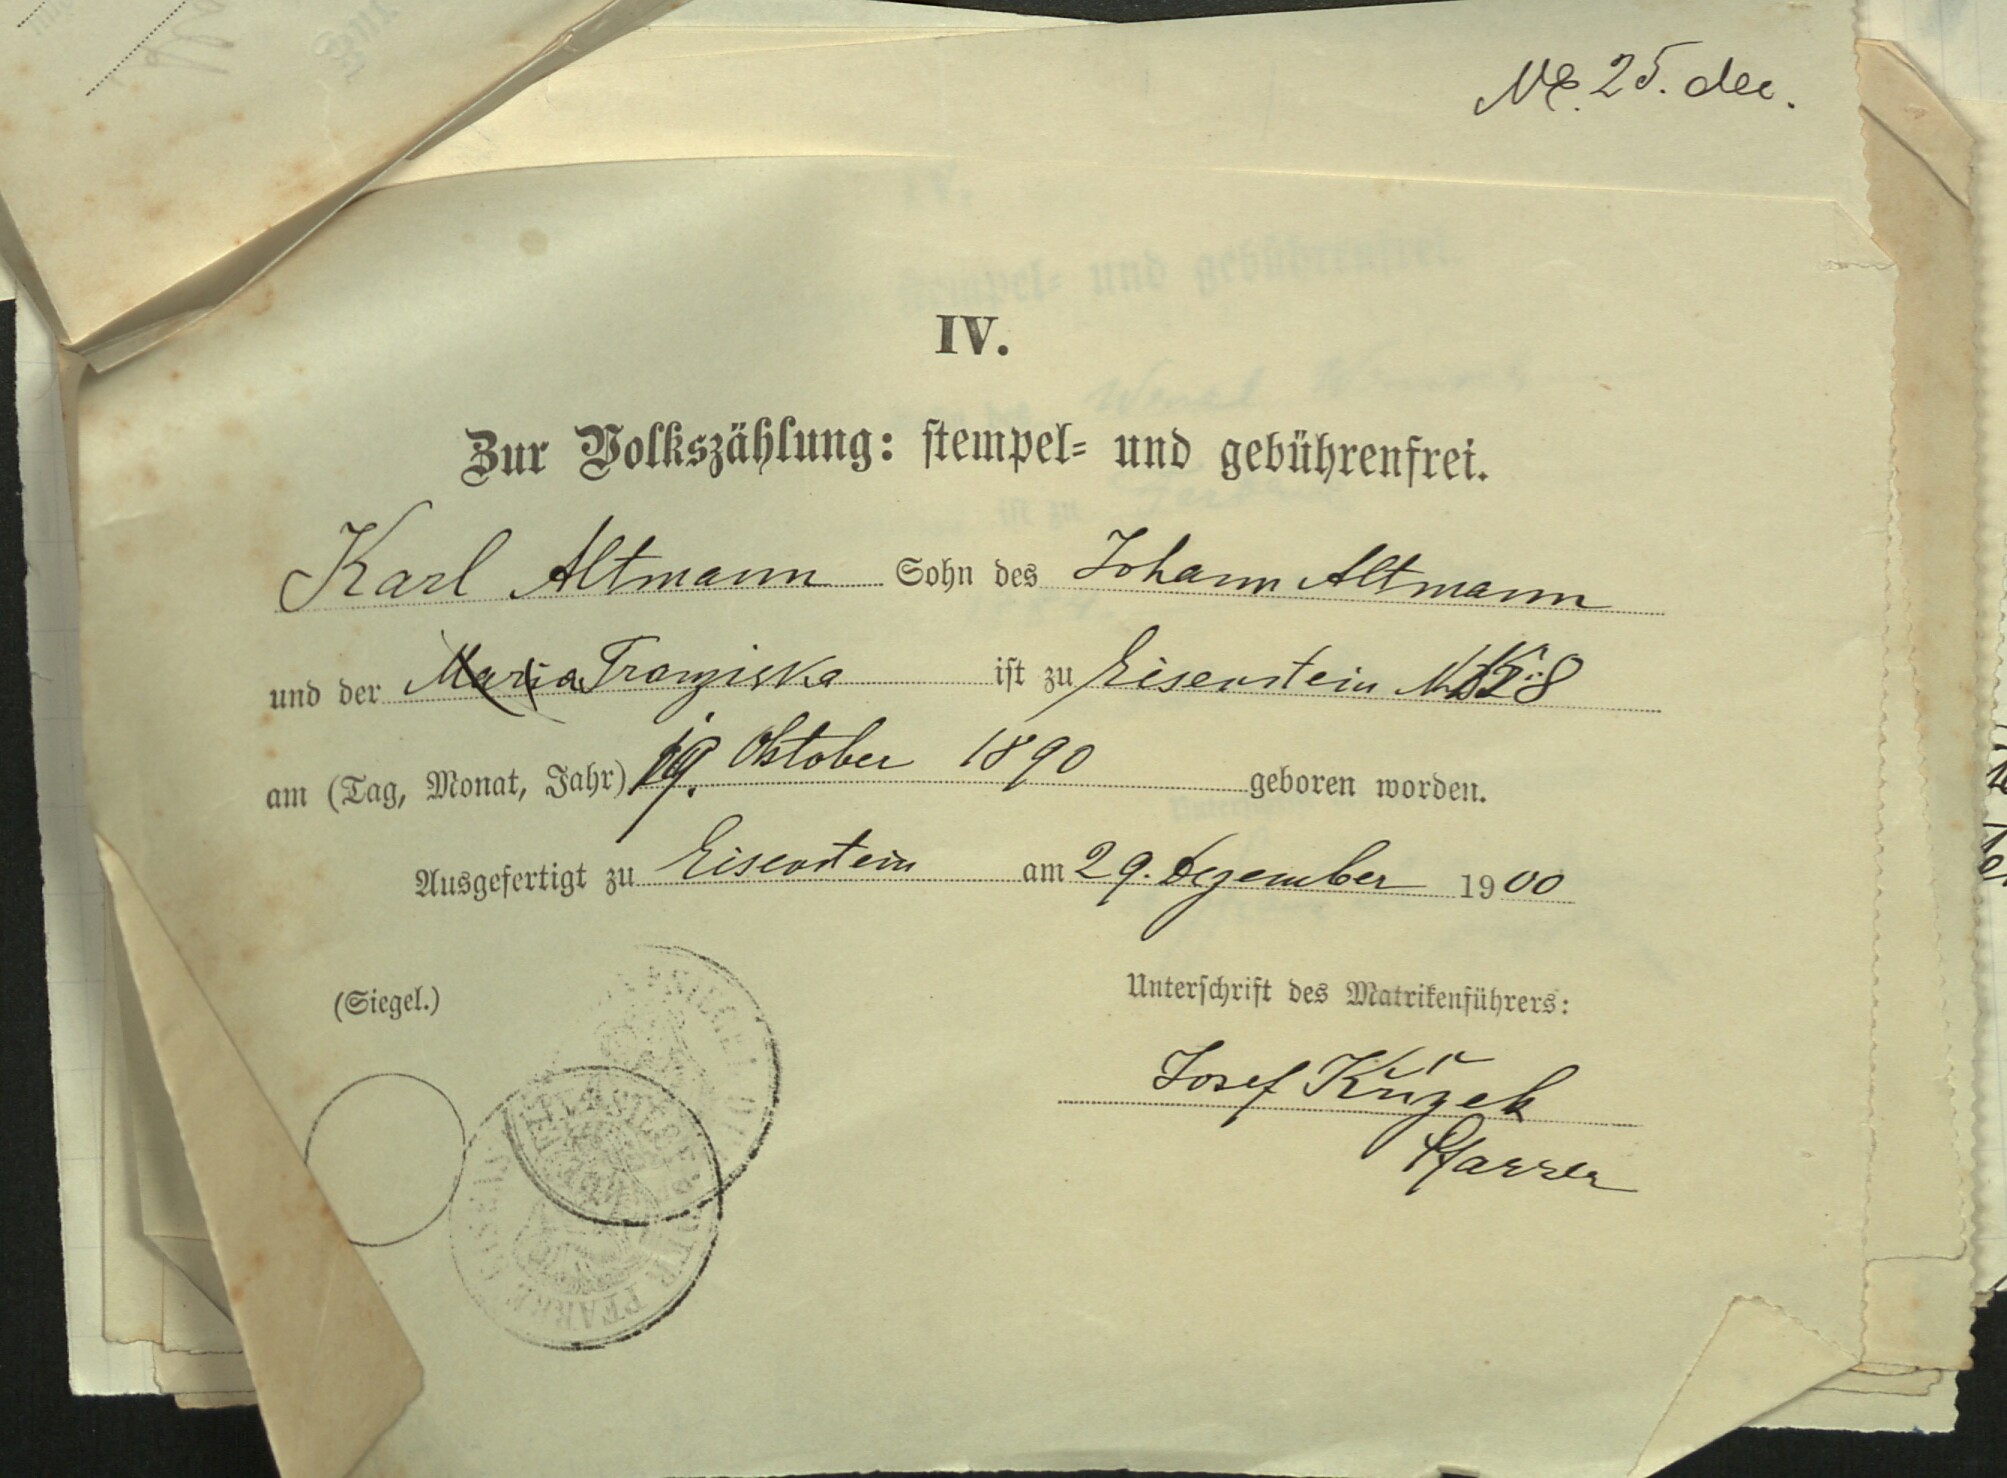 25. dec.
IV.
Zur Volkszählung: stempel- und gebührenfrei.
Karl Altmann Sohn des Johann Altmann
und der Maria Franziska ist zu Eisenstein
am (Tag, Monat, Jahr) 19. Oktober 1890 geboren worden.
Ausgefertigt zu Eisenstein am 29. Dezember 1900
(Siegel.)
Unterschrift des Matrikenführers:
Josef Kužek
Pfarrer